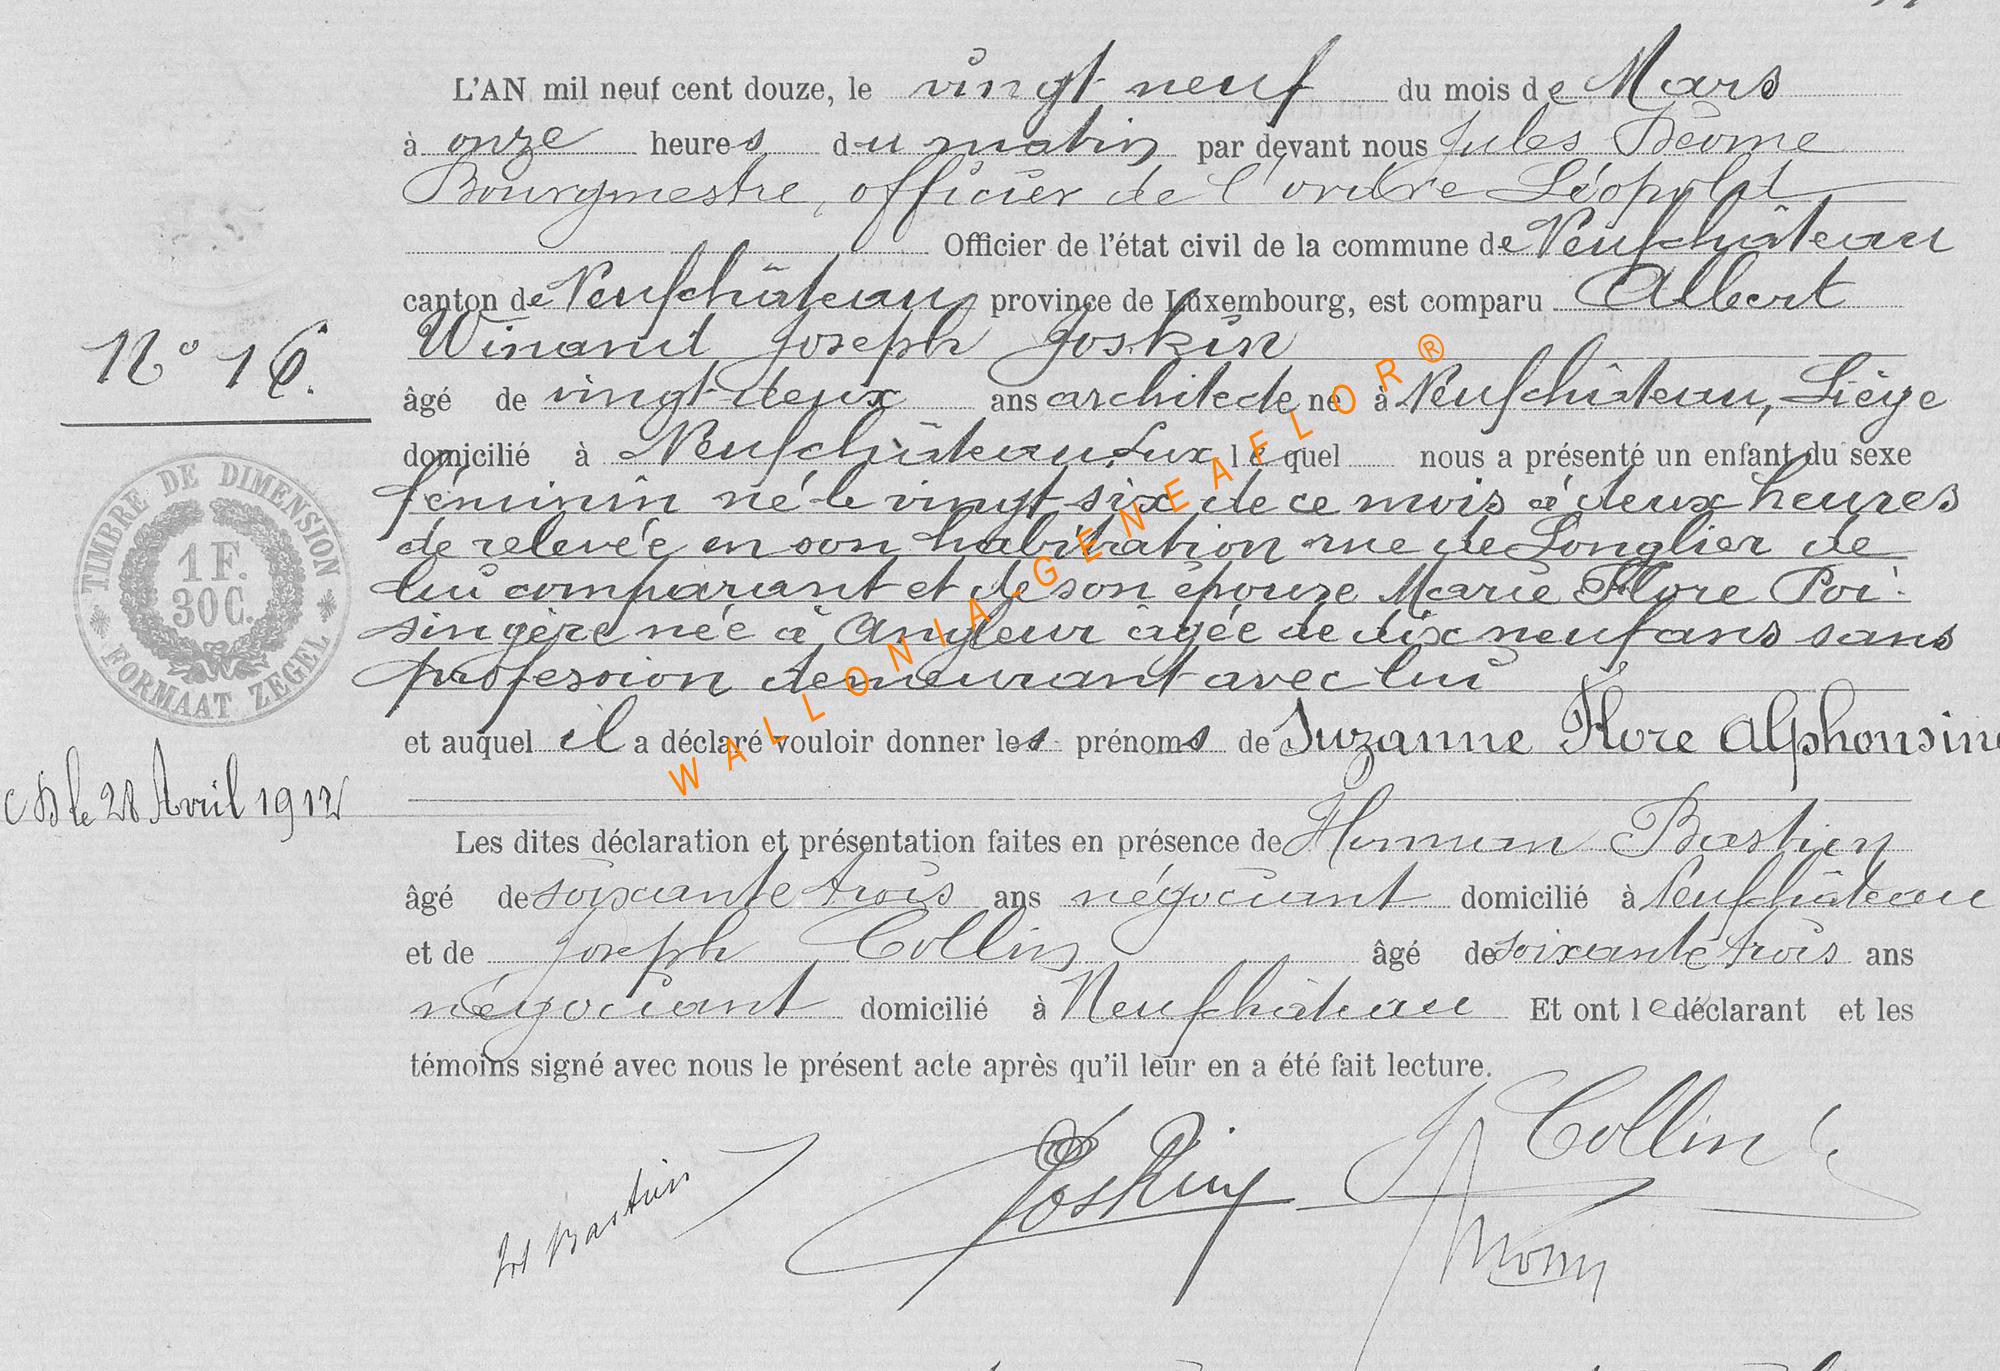 L'AN mil neuf cent douze, le vingt neuf du mois de Mars
à onze heures du matin par devant nous Jules
Bourgmestre, officier de l'ordre Léopold
Officier de l'état civil de la commune de Neufchâteau
canton de Neufchâteau province de Luxembourg, est comparu Albert
N° 16.
Winand Joseph Joskin
âgé de vingt-deux ans architecte né à Neufchâteau, Liège
domicilié à Neufchâteau. Lux le quel nous a présenté un enfant du sexe
féminin né le vingt-six de ce mois à deux heures
de relevée en son habitation rue de Longlier de
lui comparant et de son épouse Marie Flore Poi-
singère née à Angleur âgée de dix neuf ans sans
profession demeurant avec lui
TIMBRE DE DIMENSION
1 F.
30 C.
FORMAAT ZEGEL
et auquel il a déclaré vouloir donner les prénoms de Suzanne Flore Alphonsine
le 28 Avril 1912
Les dites déclaration et présentation faites en présence de Herman Bastien
âgé de soixante trois ans négociant domicilié à Neufchâteau
et de Joseph Collin âgé de soixante trois ans
négociant domicilié à Neufchâteau Et ont le déclarant et les
témoins signé avec nous le présent acte après qu'il leur en a été fait lecture.
Bastien
Joskin
J Collin
WALLONIA-GENEAFLOR®